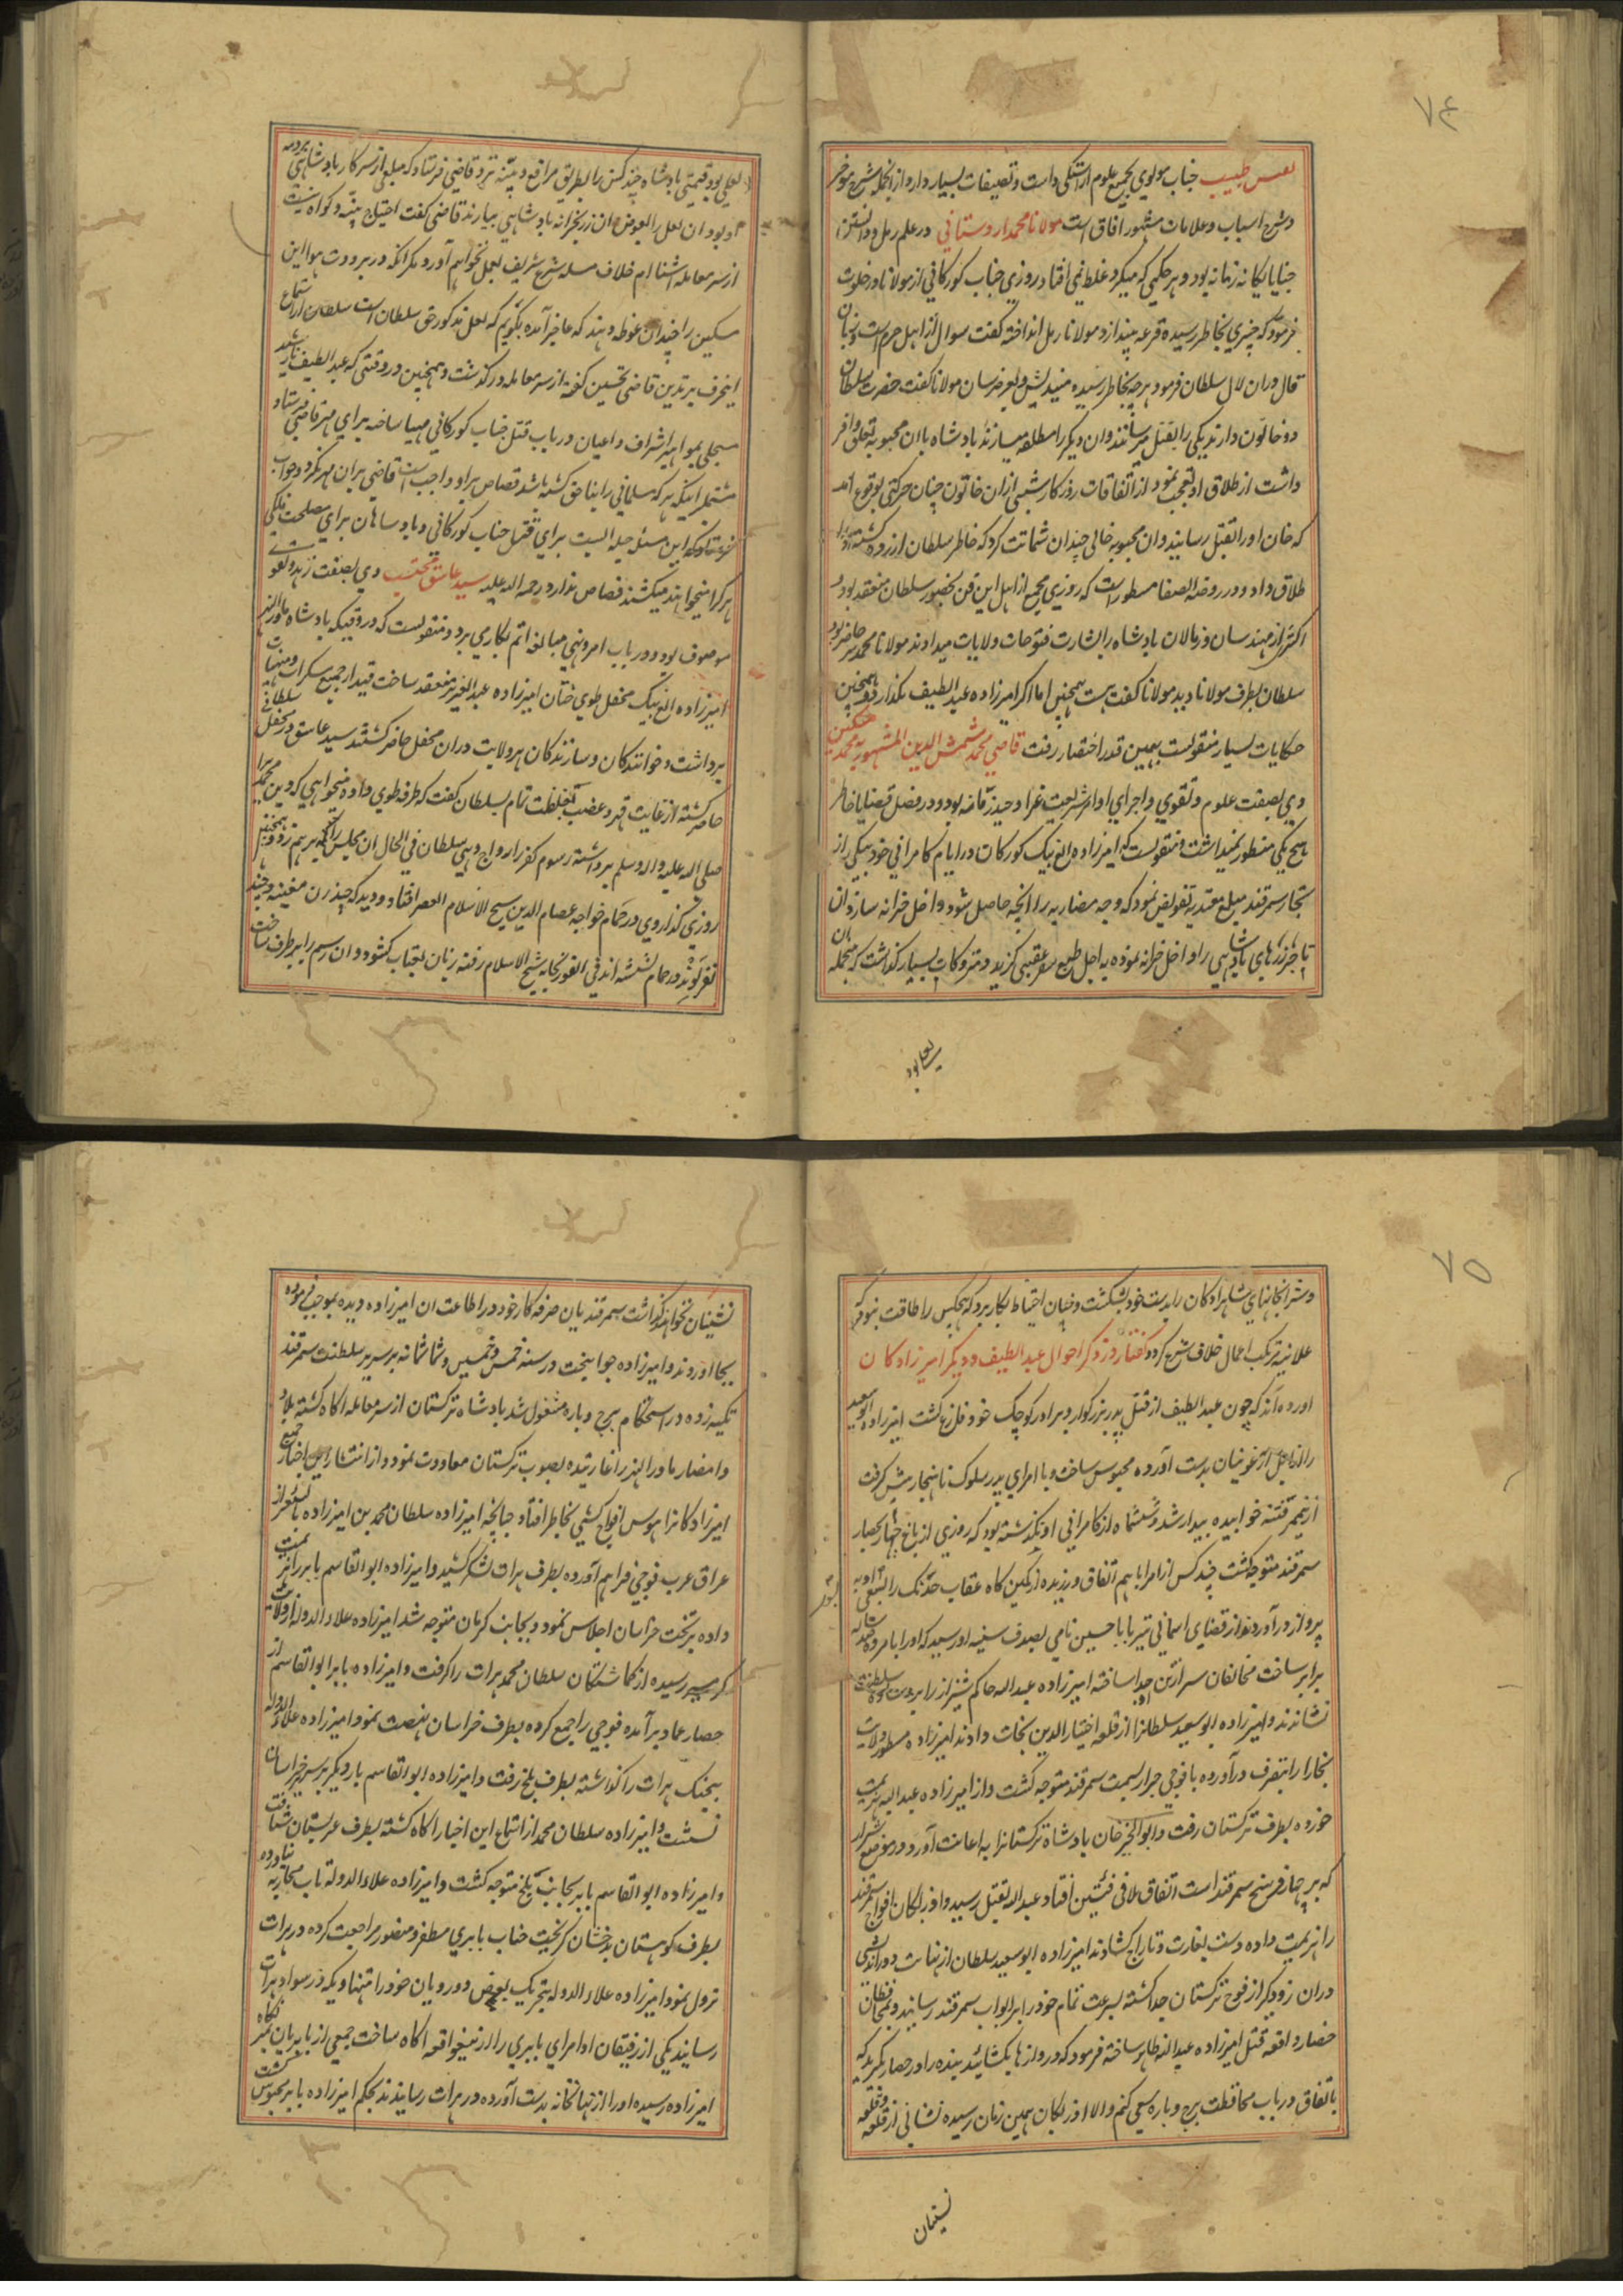 ۷۴
طبیب جناب مولوی بجمیع علوم آراستگی داشت و تصنیفات بسیار دارد از انجمله شرح موجز
و شرح اسباب و علامات مشهور آفاق است مولانا محمد اردستانی در علم رمل و دانستن
خبایا یکانه زمانه بود و هر حکمی که میکرد غلط نمی افتاد روزی جناب کورکانی از مولانا در خلوت
فرمود که چیزی بخاطر رسیده قرعه بینداز و مولانا رمل انداخته گفت سوال از اهل حرم است و زبان
قال دران لال سلطان فرمود هر چه بخاطر رسیده میندیش و بعرض رسان مولانا گفت حضرت سلطان
دو خاتون دارند یکی را بقتل میرسانند وان دیکر را مطلقه میسازند بادشاه با ان محبوبه تعلق وافر
داشت از طلاق او تعجب نمود از اتفاقات روزکار شبی ازان خاتون چنان حرکتی بوقوع آمد
که خان او را بقتل رسانید وان محبوبه خالی چندان شماتت کرد که خاطر سلطان آزرده کشته او را
طلاق داد و در روضة الصفا مسطور است که روزی جمیع از اهل این فن بحضور سلطان منعقد بود و
اکثر از مهندسان و رمالان بادشاه را بشارت فتوحات ولایات میدادند مولانا محمد حاضر بود
سلطان بطرف مولانا دید مولانا گفت هست همچنین اما اکر امیرزاده عبد الطیف بکذارد و همچنین
حکایات بسیار منقولست بهمین قدر اختصار رفت قاضی محمد شمش الدین المشهور به محمد مسکین
وی بصفت علوم و تقوی و اجرای اوامر شریعت غرا وحید زمانه بود و در فصل قضایا خاطر
هیچ یکی منظور نمیداشت و منقولست که امیرزاده الغ بیک کورکان در ایام کامرانی خود بیکی از
تجار سمرقند مبلغ معتد به تفویض نمود که وجه مضاربه را انچه حاصل شود داخل خزانه سازد ان
تاجر زرهای بادشاهی را داخل خزانه نموده به اجل طبع سفر عقبی کزید و متروکات بسیار کذاشت که منجمله آن
لعلی بود
لعلی بود قیمتی بادشاه چند کس را بطریق مرافع و بینه نزد قاضی فرستاد که مبلغی از سرکار بادشاهی بر ذمه
او بود ان لعل را بعوض ان زر بخزانه بادشاهی بیارند قاضی گفت احتیاج بینه و کواه نیست
از سر معامله اشنا ام خلاف مسله شرع شریف بعمل نخواهم آورد مکر انکه در برودت هوا این
مسکین را چندان غوطه دهند که عاجز آمده بکویم که لعل مذکور حق سلطان است سلطان از استماع
اینحرف بر تدین قاضی تحسین کفته از سر معامله در کذشت و همچنین در وقتی که عبد الطیف نا رشید
سجلی بمواهیر اشراف و اعیان در باب قتل جناب کورکانی مهیا ساخته برای مهر قاضی فرستاد
مشتمل اینکه هر که مسلمانی را بناحق کشته باشد قصاص بر او واجب است قاضی بران مهر نکرد و جواب
فرستاد که این مسئله حیله ایست برای قتل جناب کورکانی و بادساهان برای مصلحت ملکی
هر کرا میخواهند میکشند قصاص ندارد رحمه الله علیه سید عاشق محتسب وی بصفت زهد و تقوی
موصوف بود و در باب امر و نهی مبالغه اتم بکار می برد و منقولست که در وقتیکه بادشاه ماورالنهر
امیرزاده الغ بیک محفل طوی ختان امیرزاده عبد العزیز منعقد ساخت قید از جمیع مسکرات و منهیات سلطانی
برداشت و خوانندکان و سازندکان هر ولایت دران محفل حاضر کشتند سید عاشق در محفل
حاضر کشته از غایت قهر و غضب بغلظت تمام بسلطان گفت که طرفه طوی داده میخواهی که دین محمد را
صلی الله علیه واله وسلم برداشته رسوم کفر را رواج دهی سلطان فی الحال ان مجلس را بر هم زد و همچنین
روزی کذار وی در حمام خواجه عصام الدین شیخ الاسلام العصر افتاد و دید که چند زن مغنیه و چند
نفر لوند در حمام نشسته اند فی الفور بخانه شیخ الاسلام رفته زبان بعتاب کشود و ان رسم را بر طرف ساخت
۷۵
و سترانجانهای شاهزادکان را بدست خود بشکشت و چنان احتیاط بکار برد که هیچکس را طاقت نبود که
علانیه مرتکب اعمال خلاف شرع کردد گفتار در ذکر احوال عبد الطیف و دیکر امیرزادکان
آورده اند که چون عبد الطیف از قتل پدر بزرکوار و برادر کوچک خود فارغ کشت امیرزاده ابو سعید
را از میان ارغونیان بدست آورده محبوس ساخت و با امرای پدر سلوک ناهنجار پیش کرفت
ازینمر فتنه خوابیده بیدار شد و ششماه از کامرانی او نکذشته بود که روزی از باغ چنار بحصار
سمرقند متوجه کشت چند کس از امرا باهم اتفاق ورزیده از کمین کاه عقاب خدنک را بقصد او به
پرواز در آوردند از قضای اسمانی تیر بابا حسین نامی بصدف سینه او رسید که او را با مرده صد ساله
برابر ساخت مخالفان سر از تن جدا ساخته امیرزاده عبد الله حاکم شیراز را بر سریر سلطنت
نشاندند و امیرزاده ابو سعید سلطان را از قلعه اختیار الدین نجات دادند امیرزاده مسطور ولایت
بخارا را بتصرف در آورده با فوجی جرار بسمت سمرقند متوجه کشت و از امیرزاده عبد الله هزیمت
خورده بطرف ترکستان رفت و ابو الخیر خان بادشاه ترکستان را به اعانت آورد و در موضع شیراز
که بر چهار فرسخ سمرقند است اتفاق ملاقی فئتین افتاد عبد الله بقتل رسید و اوزبکان افواج سمرقند
را هزیمت داده دست بغارت و تاراج کشادند امیرزاده ابو سعید سلطان از نهایت دوراندیشی
دران زودیکر از فوج ترکستان جدا کشته بسرعت تمام خود را بر ابواب سمرقند رسانید و بمحافظان
حصار واقعه قتل امیرزاده عبد الله ظاهر ساخته فرمود که دروازها بکشائید بنده را در حصار بکیرید که
باتفاق در باب محافظت برج و باره سعی کنم والا اوزبکان بهمین زمان رسیده نشانی از قلعه و قلعه
نشینان
نشینان نخواهند کذاشت سمرقندیان صرفه کار خود در اطاعت ان امیرزاده دیده بموجب فرموده
بجا آوردند و امیرزاده جوانبخت در سنه خمس و خمسین و ثمانمانه بر سریر سلطنت سمرقند
تکیه زده در استحکام برج و باره مشغول شد بادشاه ترکستان از سر معامله اکاه کشته بلاد
و امصار ماورالنهر را غارتیده بصوب ترکستان معاودت نمود و از انتشار این اخبار جمیع
امیرزادکان را هوس افواج کشی بخاطر افتاد چنانچه امیرزاده سلطان محمد بن امیرزاده بایسنغر از
عراق عرب فوجی فراهم آورده بطرف هرات لشکر کشید و امیرزاده ابو القاسم بابر را هزیمت
داده بر تخت خراسان اجلاس نمود و بجانب کرمان متوجه شد امیرزاده علاء الدوله از ولایت
کرمسیر رسیده از کماشتکان سلطان محمد هرات را کرفت و امیرزاده بابر ابو القاسم از
حصار عماد بر آمده فوجی را جمع کرده بطرف خراسان نهضت نمود امیرزاده علاء الدوله
بیجنک هرات را کذاشته بطرف بلخ رفت و امیرزاده ابو القاسم بار دیکر بر سریر خراسان
نشست و امیرزاده سلطان محمد از استماع این اخبار اکاه کشته بطرف عربستان شتافت
و امیرزاده ابو القاسم بابر بجانب بلخ متوجه کشت و امیرزاده علاء الدولة تاب محاربه نیاورده
بطرف کوهستان بدخشان کریخت جناب بابری مظفر و منصور مراجعت کرده در هرات
نزول نمود امیرزاده علاء الدوله بتحریک بعض دو رویان خود را تنها و یکه در سواد هرات
رسانید یکی از رفیقان او امرای بابری را ازینواقعه اکاه ساخت جمعی از بابریان بمنزلکاه
امیرزاده رسیده او را از نهانخانه بدست آورده در هرات رسانیدند بحکم امیرزاده بابر محبوس کشت